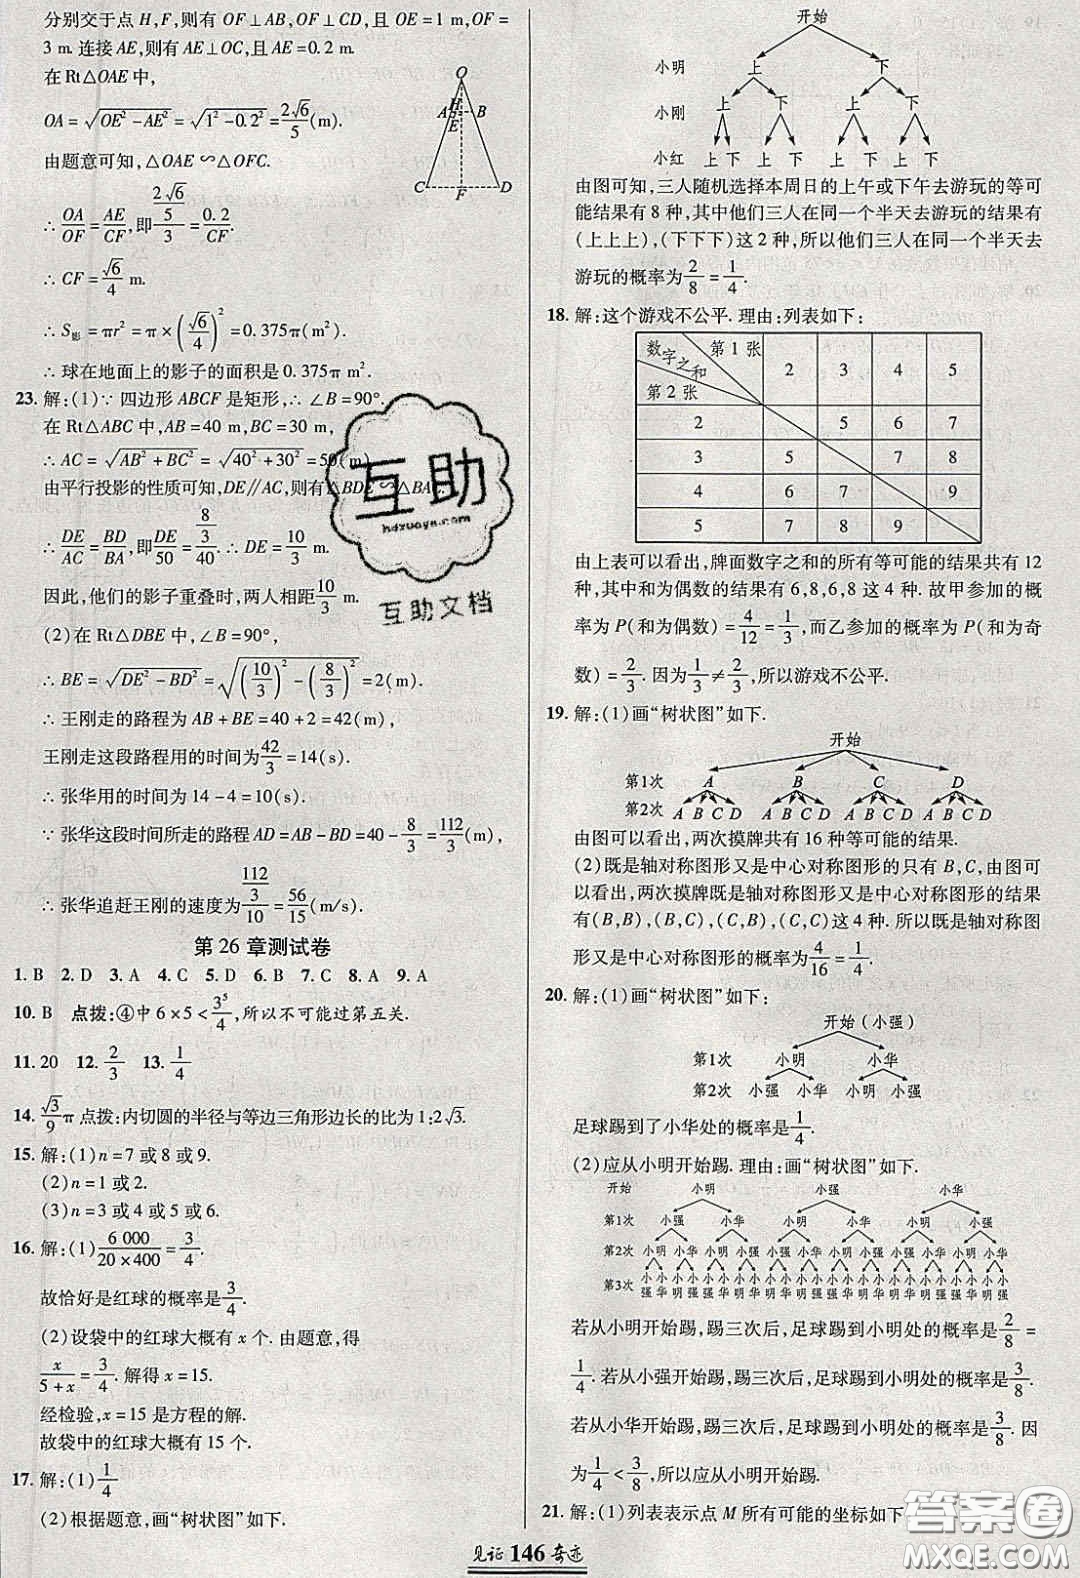 分别交于点 H,F,则有 OF⊥AB,OF⊥CD,且 OE=1 m,OF=
3 m. 连接 AE,则有 AE⊥OC,且 AE=0.2 m.
在 Rt△OAE 中,
OA=√(OE²-AE²)=√(1²-0.2²)=2√6/5(m).
由题意可知,△OAE∽△OFC.
∴ OA/OF=AE/CF,即 (2√6/5)/3=0.2/CF.
∴ CF=√6/4 m.
∴ S影=πr²=π×(√6/4)²=0.375π(m²).
∴ 球在地面上的影子的面积是 0.375π m².
O
A H B
E
C F D
23. 解:(1)∵ 四边形 ABCF 是矩形,∴ ∠B=90°.
在 Rt△ABC 中,AB=40 m,BC=30 m,
∴ AC=√(AB²+BC²)=√(40²+30²)=50(m).
由平行投影的性质可知,DE∥AC,则有△BDE∽△BAC.
∴ DE/AC=BD/BA,即 DE/50=(8/3)/40. ∴ DE=10/3 m.
因此,他们的影子重叠时,两人相距 10/3 m.
(2)在 Rt△DBE 中,∠B=90°,
∴ BE=√(DE²-BD²)=√((10/3)²-(8/3)²)=2(m).
∴ 王刚走的路程为 AB+BE=40+2=42(m),
王刚走这段路程用的时间为 42/3=14(s).
∴ 张华用的时间为 14-4=10(s).
∵ 张华这段时间所走的路程 AD=AB-BD=40-8/3=112/3(m),
∴ 张华追赶王刚的速度为 (112/3)/10=56/15(m/s).
第 26 章测试卷
1. B 2. D 3. A 4. C 5. D 6. B 7. C 8. A 9. A
10. B 点拨:④中 6×5<3⁵/4,所以不可能过第五关.
11. 20 12. 2/3 13. 1/4
14. √3/9 π 点拨:内切圆的半径与等边三角形边长的比为 1:2√3.
15. 解:(1)n=7 或 8 或 9.
(2)n=1 或 2.
(3)n=3 或 4 或 5 或 6.
16. 解:(1)6 000/(20×400)=3/4.
故恰好是红球的概率是 3/4.
(2)设袋中的红球大概有 x 个. 由题意,得
x/(5+x)=3/4. 解得 x=15.
经检验,x=15 是方程的解.
故袋中的红球大概有 15 个.
17. 解:(1)1/4
(2)根据题意,画“树状图”如下.
开始
小明 上 下
小刚 上 下 上 下
小红 上 下 上 下 上 下 上 下
由图可知,三人随机选择本周日的上午或下午去游玩的等可
能结果有 8 种,其中他们三人在同一个半天去游玩的结果有
(上上上),(下下下)这 2 种,所以他们三人在同一个半天去
游玩的概率为 2/8=1/4.
18. 解:这个游戏不公平. 理由:列表如下:
数字之和 第 1 张 2 3 4 5
第 2 张
2 5 6 7
3 5 7 8
4 6 7 9
5 7 8 9
由上表可以看出,牌面数字之和的所有等可能的结果共有 12
种,其中和为偶数的结果有 6,8,6,8 这 4 种. 故甲参加的概
率为 P(和为偶数)=4/12=1/3,而乙参加的概率为 P(和为奇
数)=2/3. 因为 1/3≠2/3,所以游戏不公平.
19. 解:(1)画“树状图”如下.
开始
第1次 A B C D
第2次 A B C D A B C D A B C D A B C D
由图可以看出,两次摸牌共有 16 种等可能的结果.
(2)既是轴对称图形又是中心对称图形的只有 B,C,由图可
以看出,两次摸牌既是轴对称图形又是中心对称图形的结果
有(B,B),(B,C),(C,B),(C,C)这 4 种. 所以既是轴对称图
形又是中心对称图形的概率为 4/16=1/4.
20. 解:(1)画“树状图”如下:
开始(小强)
第1次 小明 小华
第2次 小强 小华 小明 小强
足球踢到了小华处的概率是 1/4.
(2)应从小明开始踢. 理由:画“树状图”如下.
开始 小明 小强 小华
第1次 小强 小华 小明 小华 小明 小强
第2次 小明 小华 小明 小强 小强 小华 小明 小强 小强 小华 小明 小华
第3次 小强 小华 小明 小强 小强 小华 小明 小华
若从小明开始踢,踢三次后,足球踢到小明处的概率是 2/8=
1/4. 若从小强开始踢,踢三次后,足球踢到小明处的概率是 3/8.
若从小华开始踢,踢三次后,足球踢到小明处的概率是 3/8. 因
为 1/4<3/8,所以应从小明开始踢.
21. 解:(1)列表表示点 M 所有可能的坐标如下
见证 146 奇迹
互助
hdzuoye.com
互助文档
答案圈
MXQE.COM